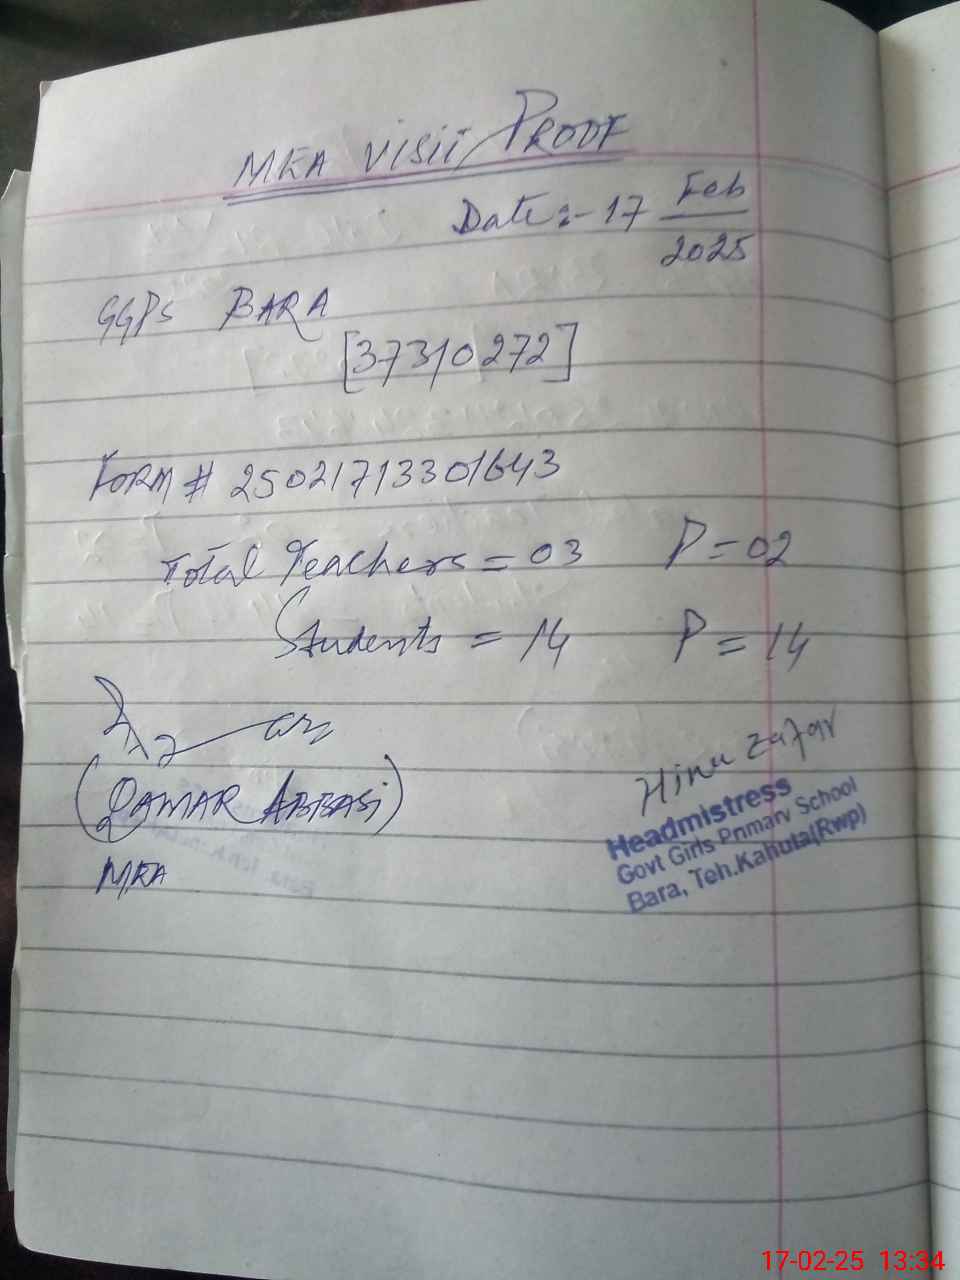 MEA VISIT PROOF
Date :- 17 Feb
2025
GGPS BARA
[37310272]
FORM # 25021713301643
Total Teachers = 03 P = 02
Students = 14 P = 14
(QAMAR ABBASI)
MEA
Hina Zafar
Headmistress
Govt Girls Primary School
Bara, Teh.Kahuta(Rwp)
17-02-25 13:34